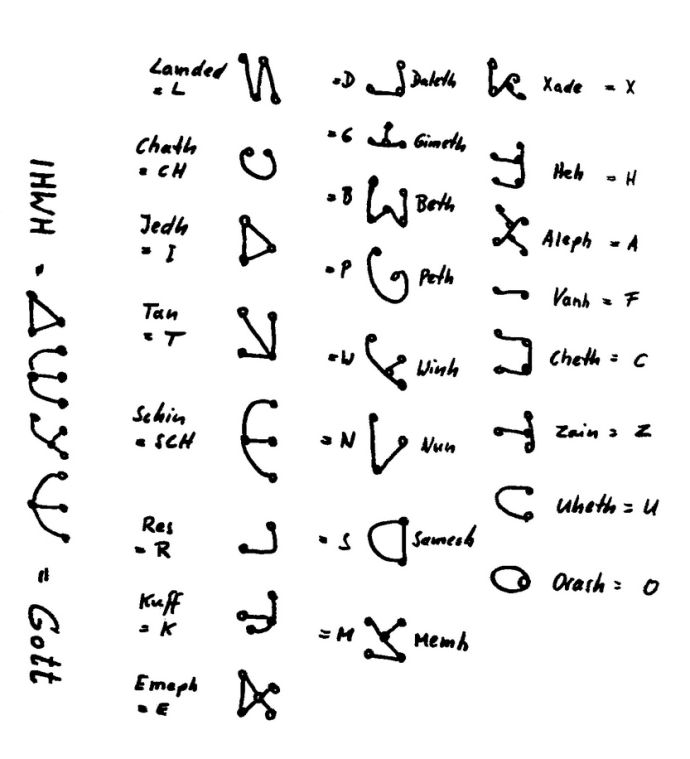 Lamded
= L
Chath
= CH
Jedh
= I
Tan
= T
Schin
= SCH
Res
= R
Kuff
= K
Emeph
= E
=D Daleth
=G Gimeth
=B Beth
=P Peth
=W Winh
=N Nun
=S Samesh
=M Memh
Xade = X
Heh = H
Aleph = A
Vanh = F
Cheth = C
Zain = Z
Uheth = U
Orash = O
IHWH = = Gott